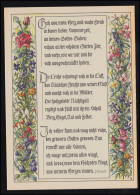 Geh aus, mein Herz, und suche Freud
in dieser lieben Sommerzeit
an deines Gottes Gaben;
Schau an der schönen Gärten Zier,
und siehe, wie sie mir und dir
sich ausgeschmücket haben.
Die Lerche schwingt sich in die Luft,
das Täublein fliegt aus seiner Kluft
und macht sich in die Wälder;
Die hochbegabte Nachtigall
ergötzt und füllt mit ihrem Schall
Berg, Hügel, Tal und Felder.
Ich selber kann und mag nicht ruhn,
des großen Gottes großes Tun
erweckt mir alle Sinnen;
ich singe mit, wenn alles singt,
und lasse, was dem Höchsten klingt,
aus meinem Herzen rinnen.